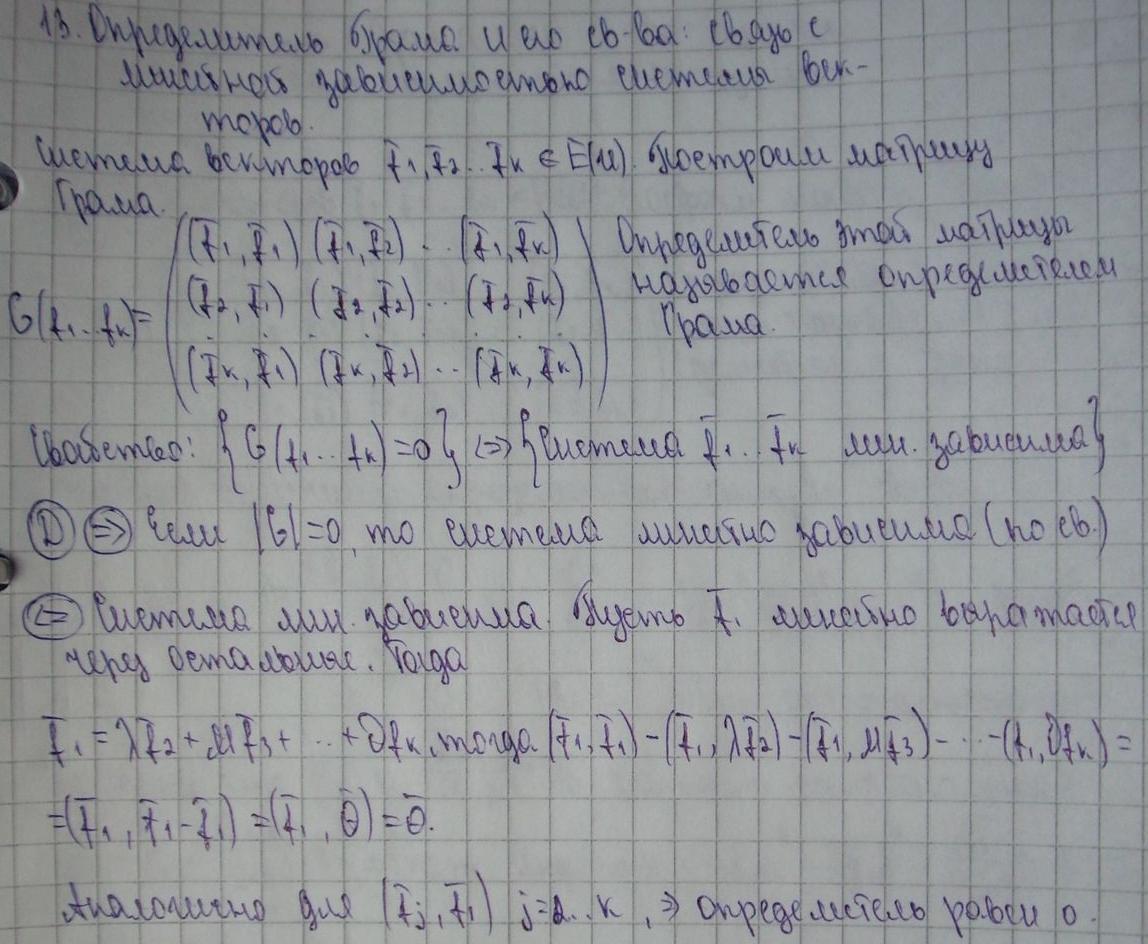 13. Определитель Грама и его св-ва: связь с
линейной зависимостью системы век-
торов.
Система векторов f̄₁, f̄₂ .. f̄ₖ ∈ E(U). Построим матрицу
Грама.
G(f₁..fₖ) = ( (f̄₁, f̄₁) (f̄₁, f̄₂) .. (f̄₁, f̄ₖ)
(f̄₂, f̄₁) (f̄₂, f̄₂) .. (f̄₂, f̄ₖ)
. . . . . . .
(f̄ₖ, f̄₁) (f̄ₖ, f̄₂) .. (f̄ₖ, f̄ₖ) )
Определитель этой матрицы
называется определителем
Грама.
Свойство: {G(f₁..fₖ)=0} ⇔ {Система f̄₁..f̄ₖ лин. зависима}
Д ⇒ Если |G|=0, то система линейно зависима (по св.)
⇐ Система лин. зависима. Пусть f̄₁ линейно выражается
через остальные. Тогда
f̄₁ = λf̄₂ + μf̄₃ + ... + ∂fₖ, тогда (f̄₁, f̄₁) - (f̄₁, λf̄₂) - (f̄₁, μf̄₃) - ... - (f₁, ∂fₖ) =
= (f̄₁, f̄₁ - f̄₁) = (f̄₁, θ̄) = ō.
Аналогично для (f̄ⱼ, f̄₁) j=2..k, ⇒ определитель равен 0.